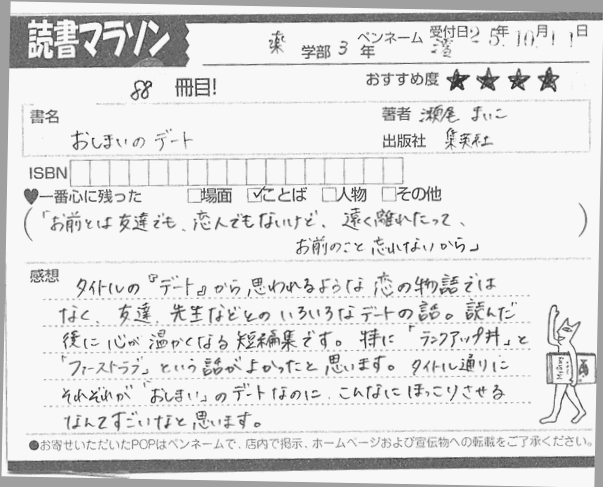 読書マラソン
薬 学部 3 年 ペンネーム 澪 受付日 25年10月11日
88 冊目! おすすめ度 ★★★★
書名 おしまいの デート
著者 瀬尾 まいこ
出版社 集英社
ISBN
♥一番心に残った □場面 ☑ことば □人物 □その他
(「お前とは友達でも、恋人でもないけど、遠く離れたって、
お前のこと忘れないから」)
感想 タイトルの『デート』から思われるような恋の物語では
なく、友達、先生などとのいろいろなデートの話。読んだ
後に心が温かくなる短編集です。特に「ランクアップ丼」と
「ファーストラブ」という話がよかったと思います。タイトル通りに
それぞれが「おしまい」のデートなのに、こんなにほっこりさせる
なんてすごいなと思います。
●お寄せいただいたPOPはペンネームで、店内で掲示、ホームページおよび宣伝物への転載をご了承ください。